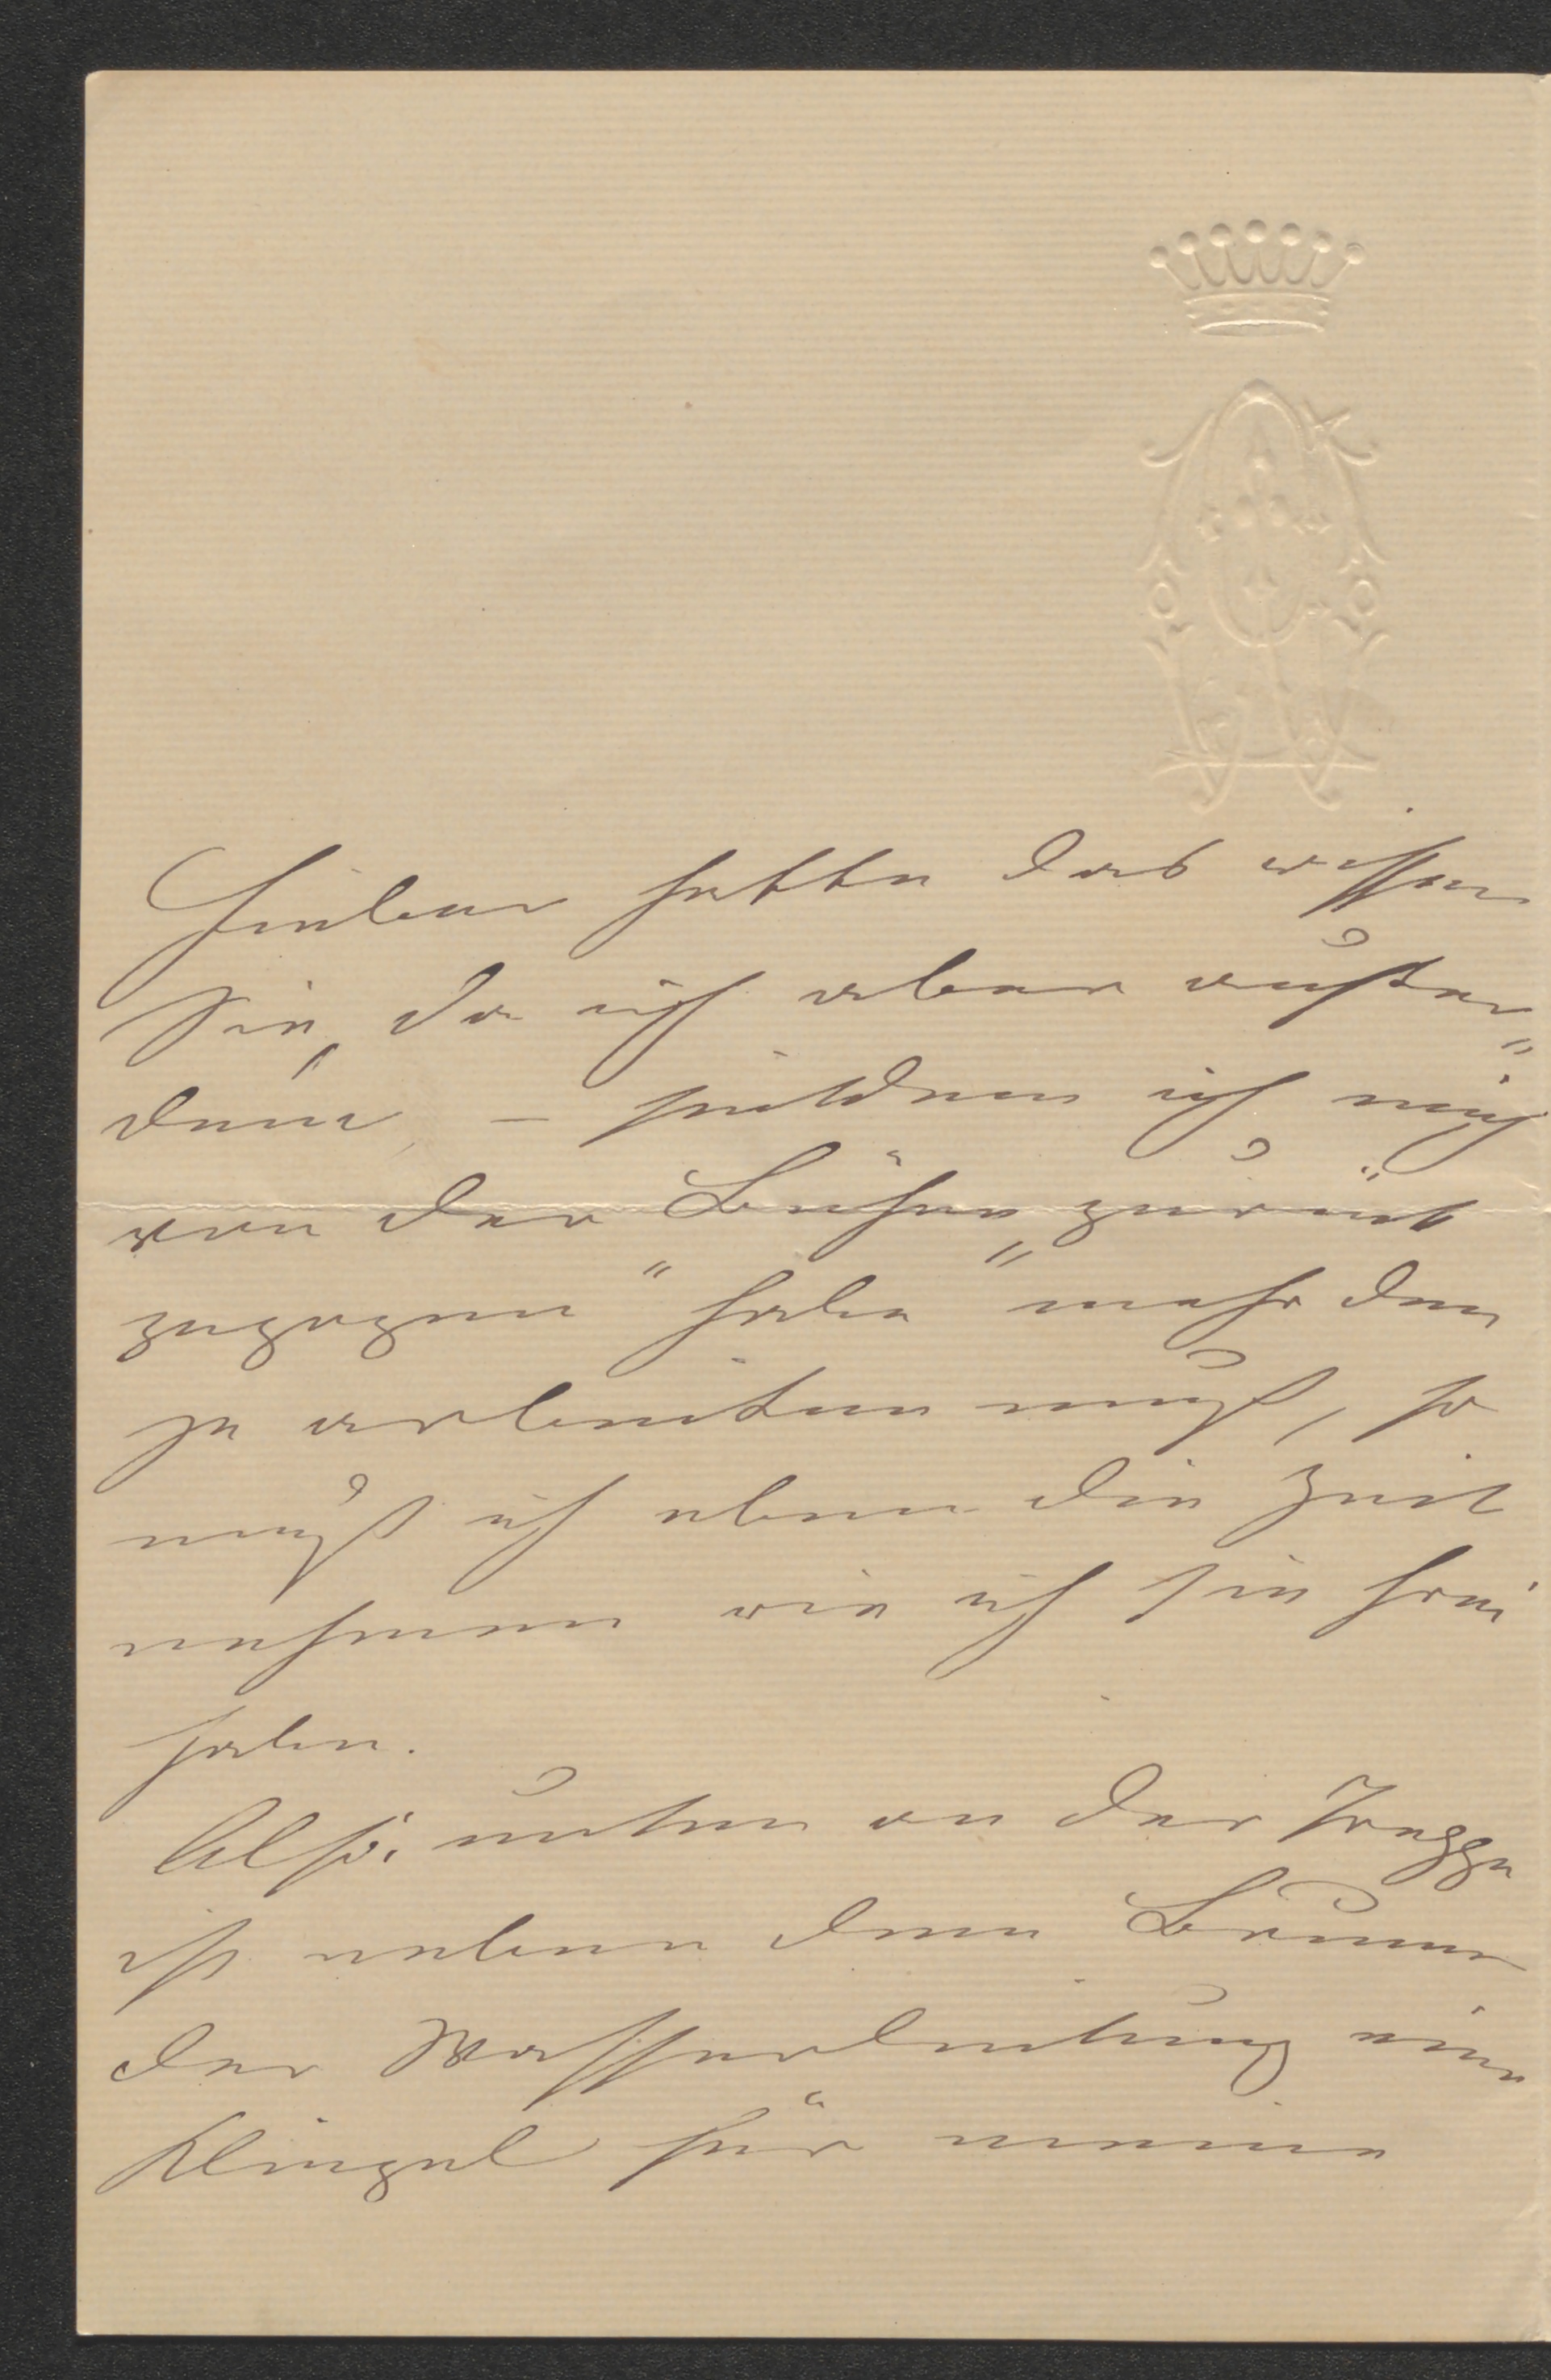 Lieber hätte das wissen
Sie, da ich aber außer„
dem, – seitdem ich mich
von der Bühne „zurück
gezogen" habe mehr denn
je arbeiten muß, so
muß ich eben die Zeit
nehmen wie ich sie frei
habe.
Also: unten an der Treppe
ist neben dem Brunnen
der Wasserleitung eine
Klingel für meine